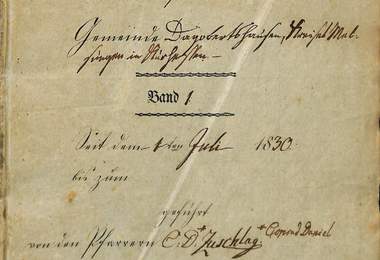 Gemeinde Dagobertshausen, Kreises Mel-
sungen in Kurhessen –
Band 1
Seit dem 1ten Juli 1830
bis zum
geführt
von den Pfarrern C. D.* Zuschlag. * Conrad Daniel